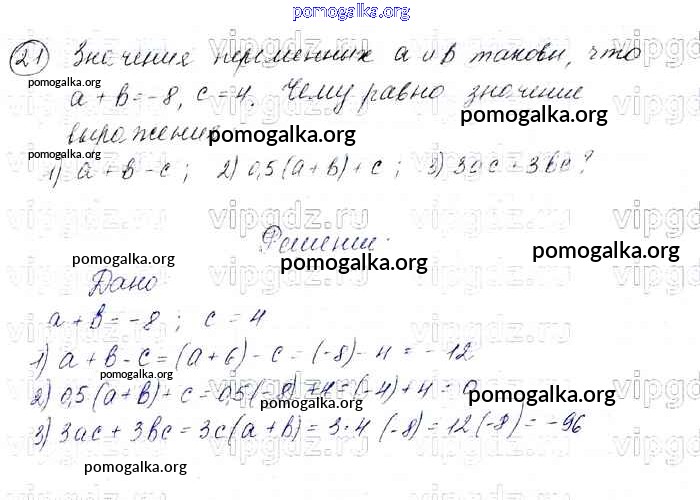 pomogalka.org
21 Значения переменных a и b таковы, что
pomogalka.org
a + b = -8, c = 4. Чему равно значение
pomogalka.org
выражения
pomogalka.org
pomogalka.org
1) a + b - c; 2) 0,5(a + b) + c; 3) 3ac + 3bc?
vipgdz.ru
Решение.
pomogalka.org
pomogalka.org
pomogalka.org
Дано
a + b = -8; c = 4
1) a + b - c = (a + b) - c = (-8) - 4 = -12
2) 0,5(a + b) + c = 0,5(-8) + 4 = (-4) + 4 = 0
pomogalka.org
pomogalka.org
3) 3ac + 3bc = 3c(a + b) = 3·4 (-8) = 12(-8) = -96
pomogalka.org